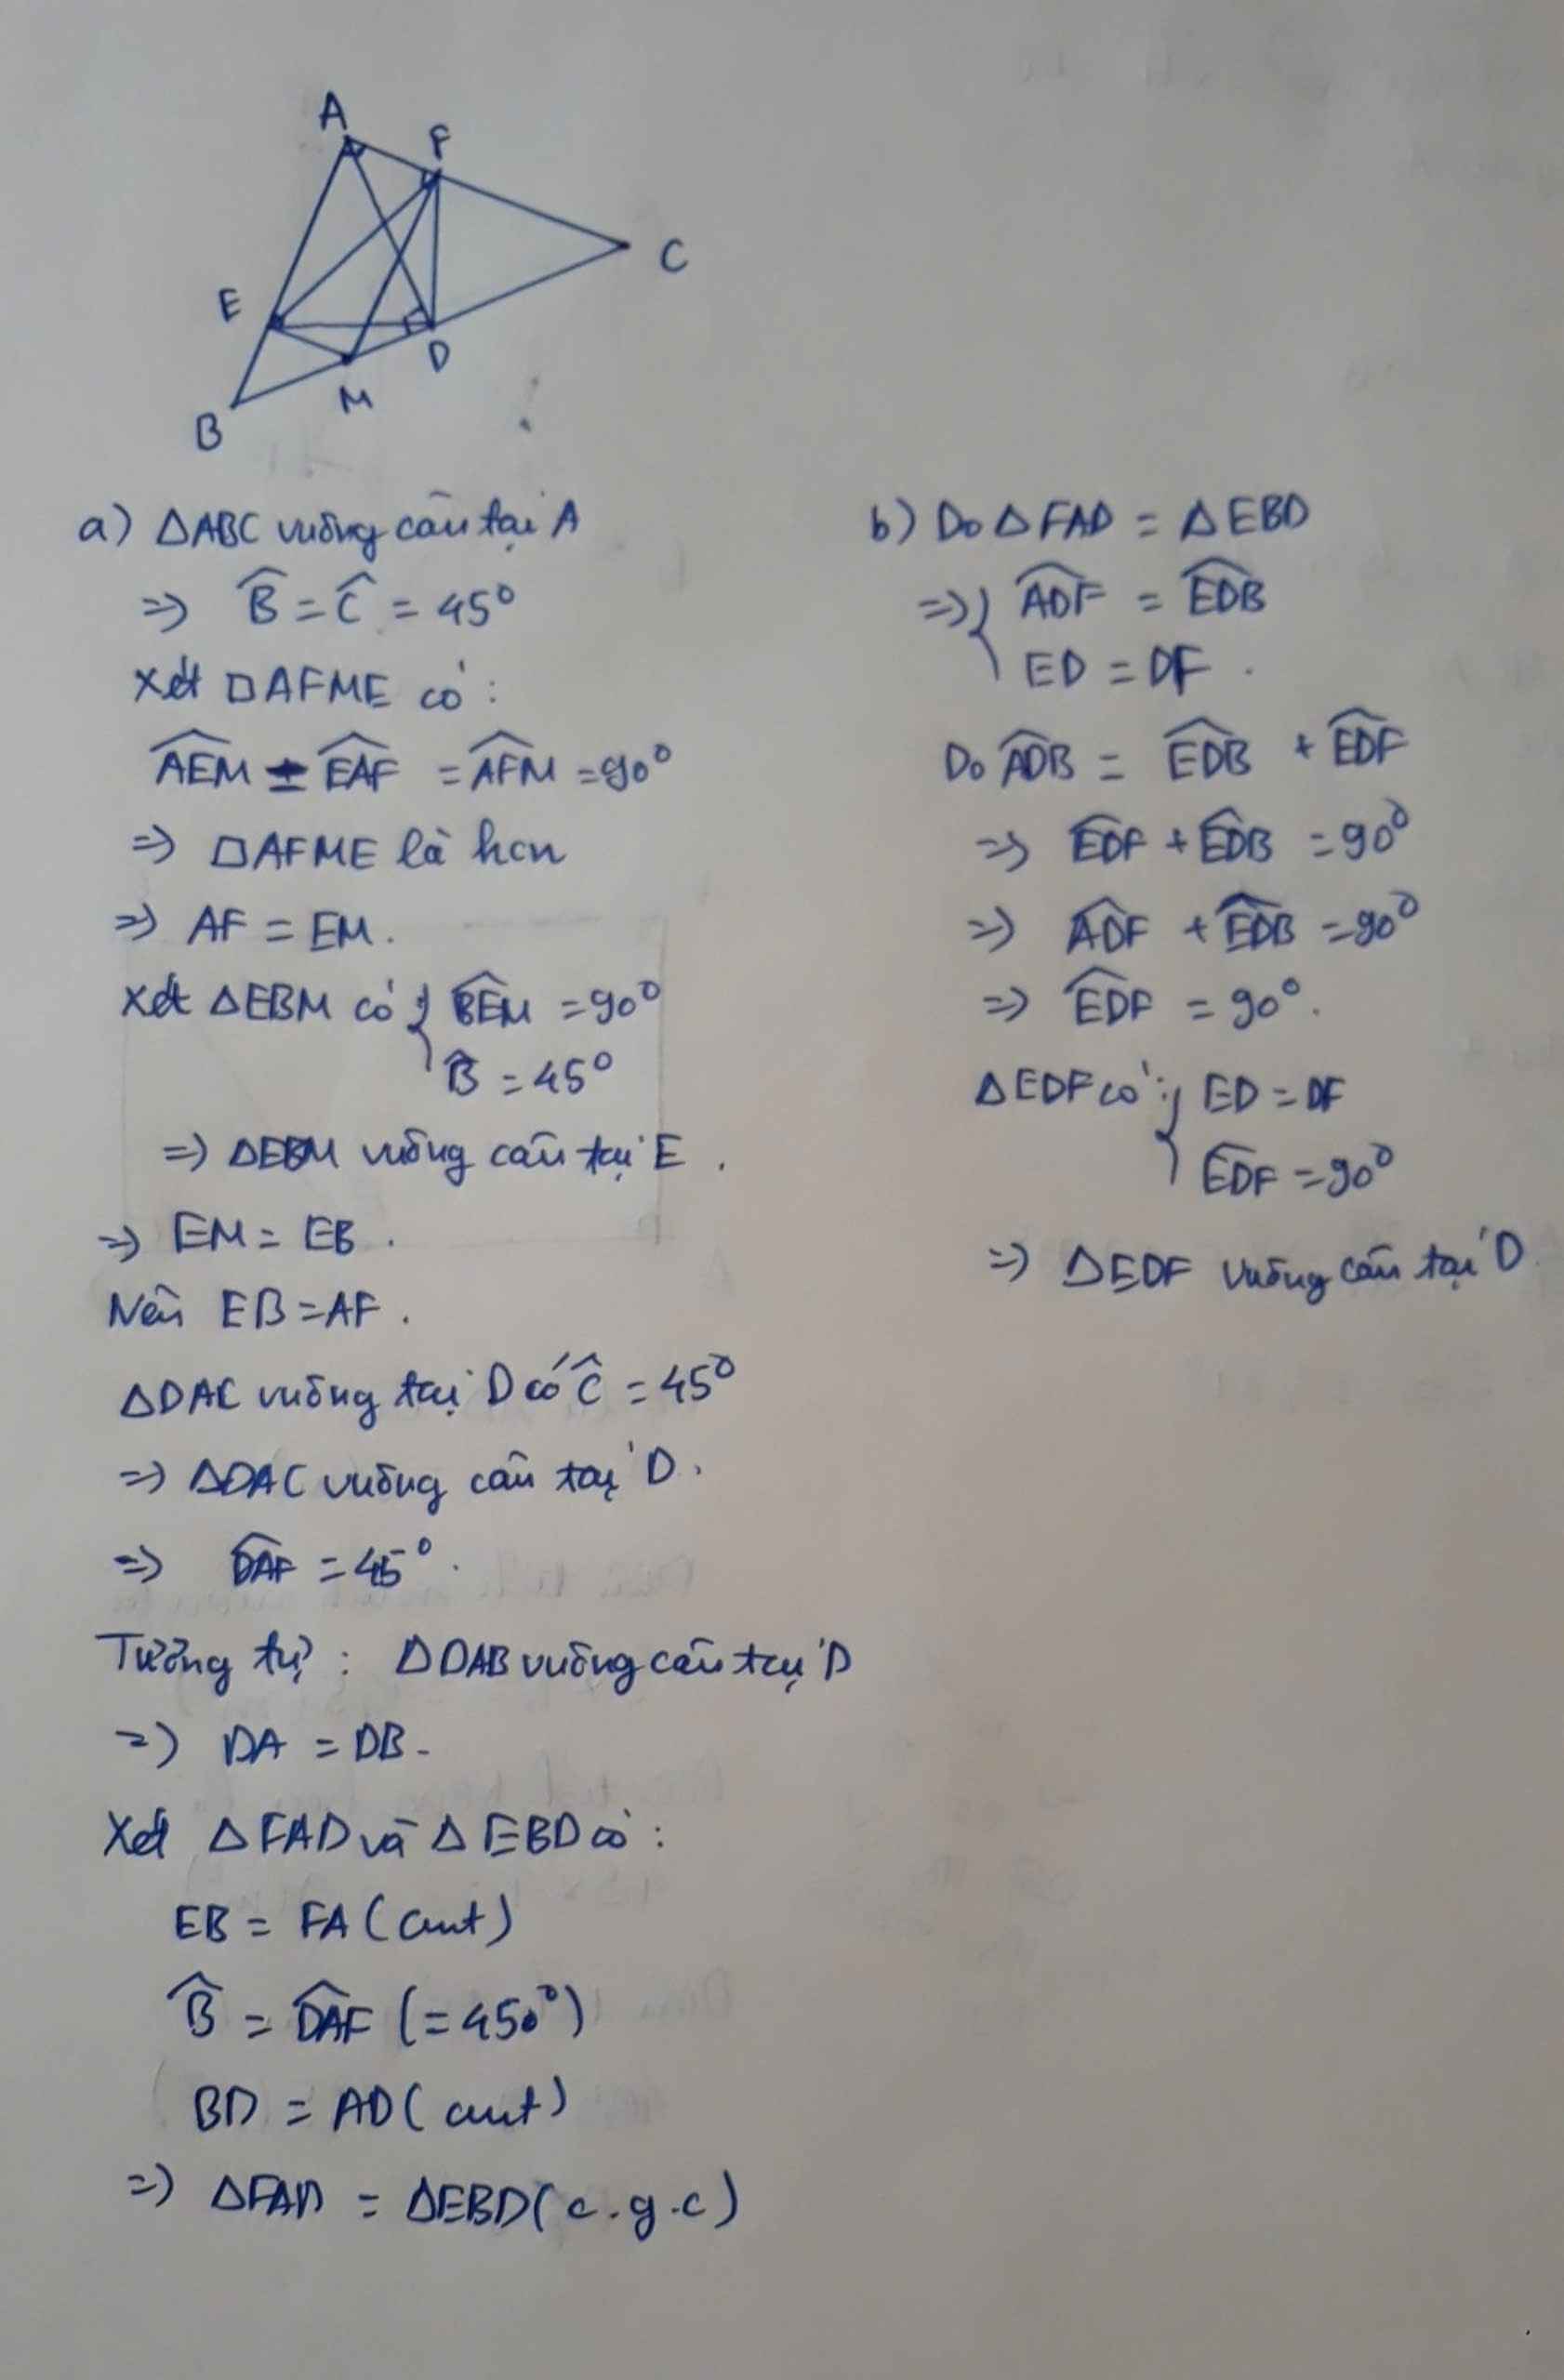 A
F
C
E
D
M
B
a) ΔABC vuông cân tại A
=> B̂ = Ĉ = 45°
Xét □AFME có:
AEM = EAF = AFM = 90°
=> □AFME là hcn
=> AF = EM.
Xét ΔEBM có { BEM = 90°
B̂ = 45°
=> ΔEBM vuông cân tại E.
=> EM = EB.
Nên EB = AF.
ΔDAC vuông tại D có Ĉ = 45°
=> ΔDAC vuông cân tại D.
=> DAF = 45°.
Tương tự: ΔDAB vuông cân tại D
=> DA = DB.
Xét ΔFAD và ΔEBD có:
EB = FA (cmt)
B̂ = DAF (= 45°)
BD = AD (cmt)
=> ΔFAD = ΔEBD (c.g.c)
b) Do ΔFAD = ΔEBD
=> { ADF = EDB
ED = DF.
Do ADB = EDB + EDF
=> EDF + EDB = 90°
=> ADF + EDB = 90°
=> EDF = 90°.
ΔEDF có: { ED = DF
EDF = 90°
=> ΔEDF vuông cân tại D